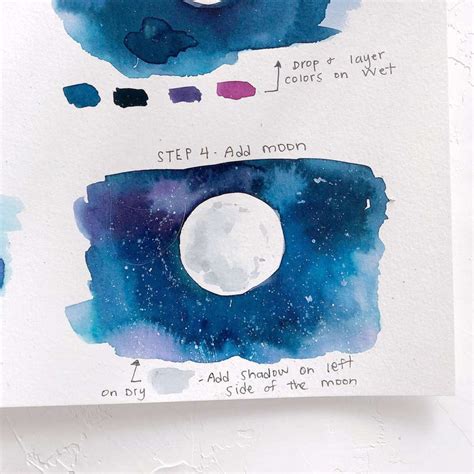 Drop & layer
colors on wet
STEP 4. Add moon
on Dry
- Add shadow on left
side of the moon